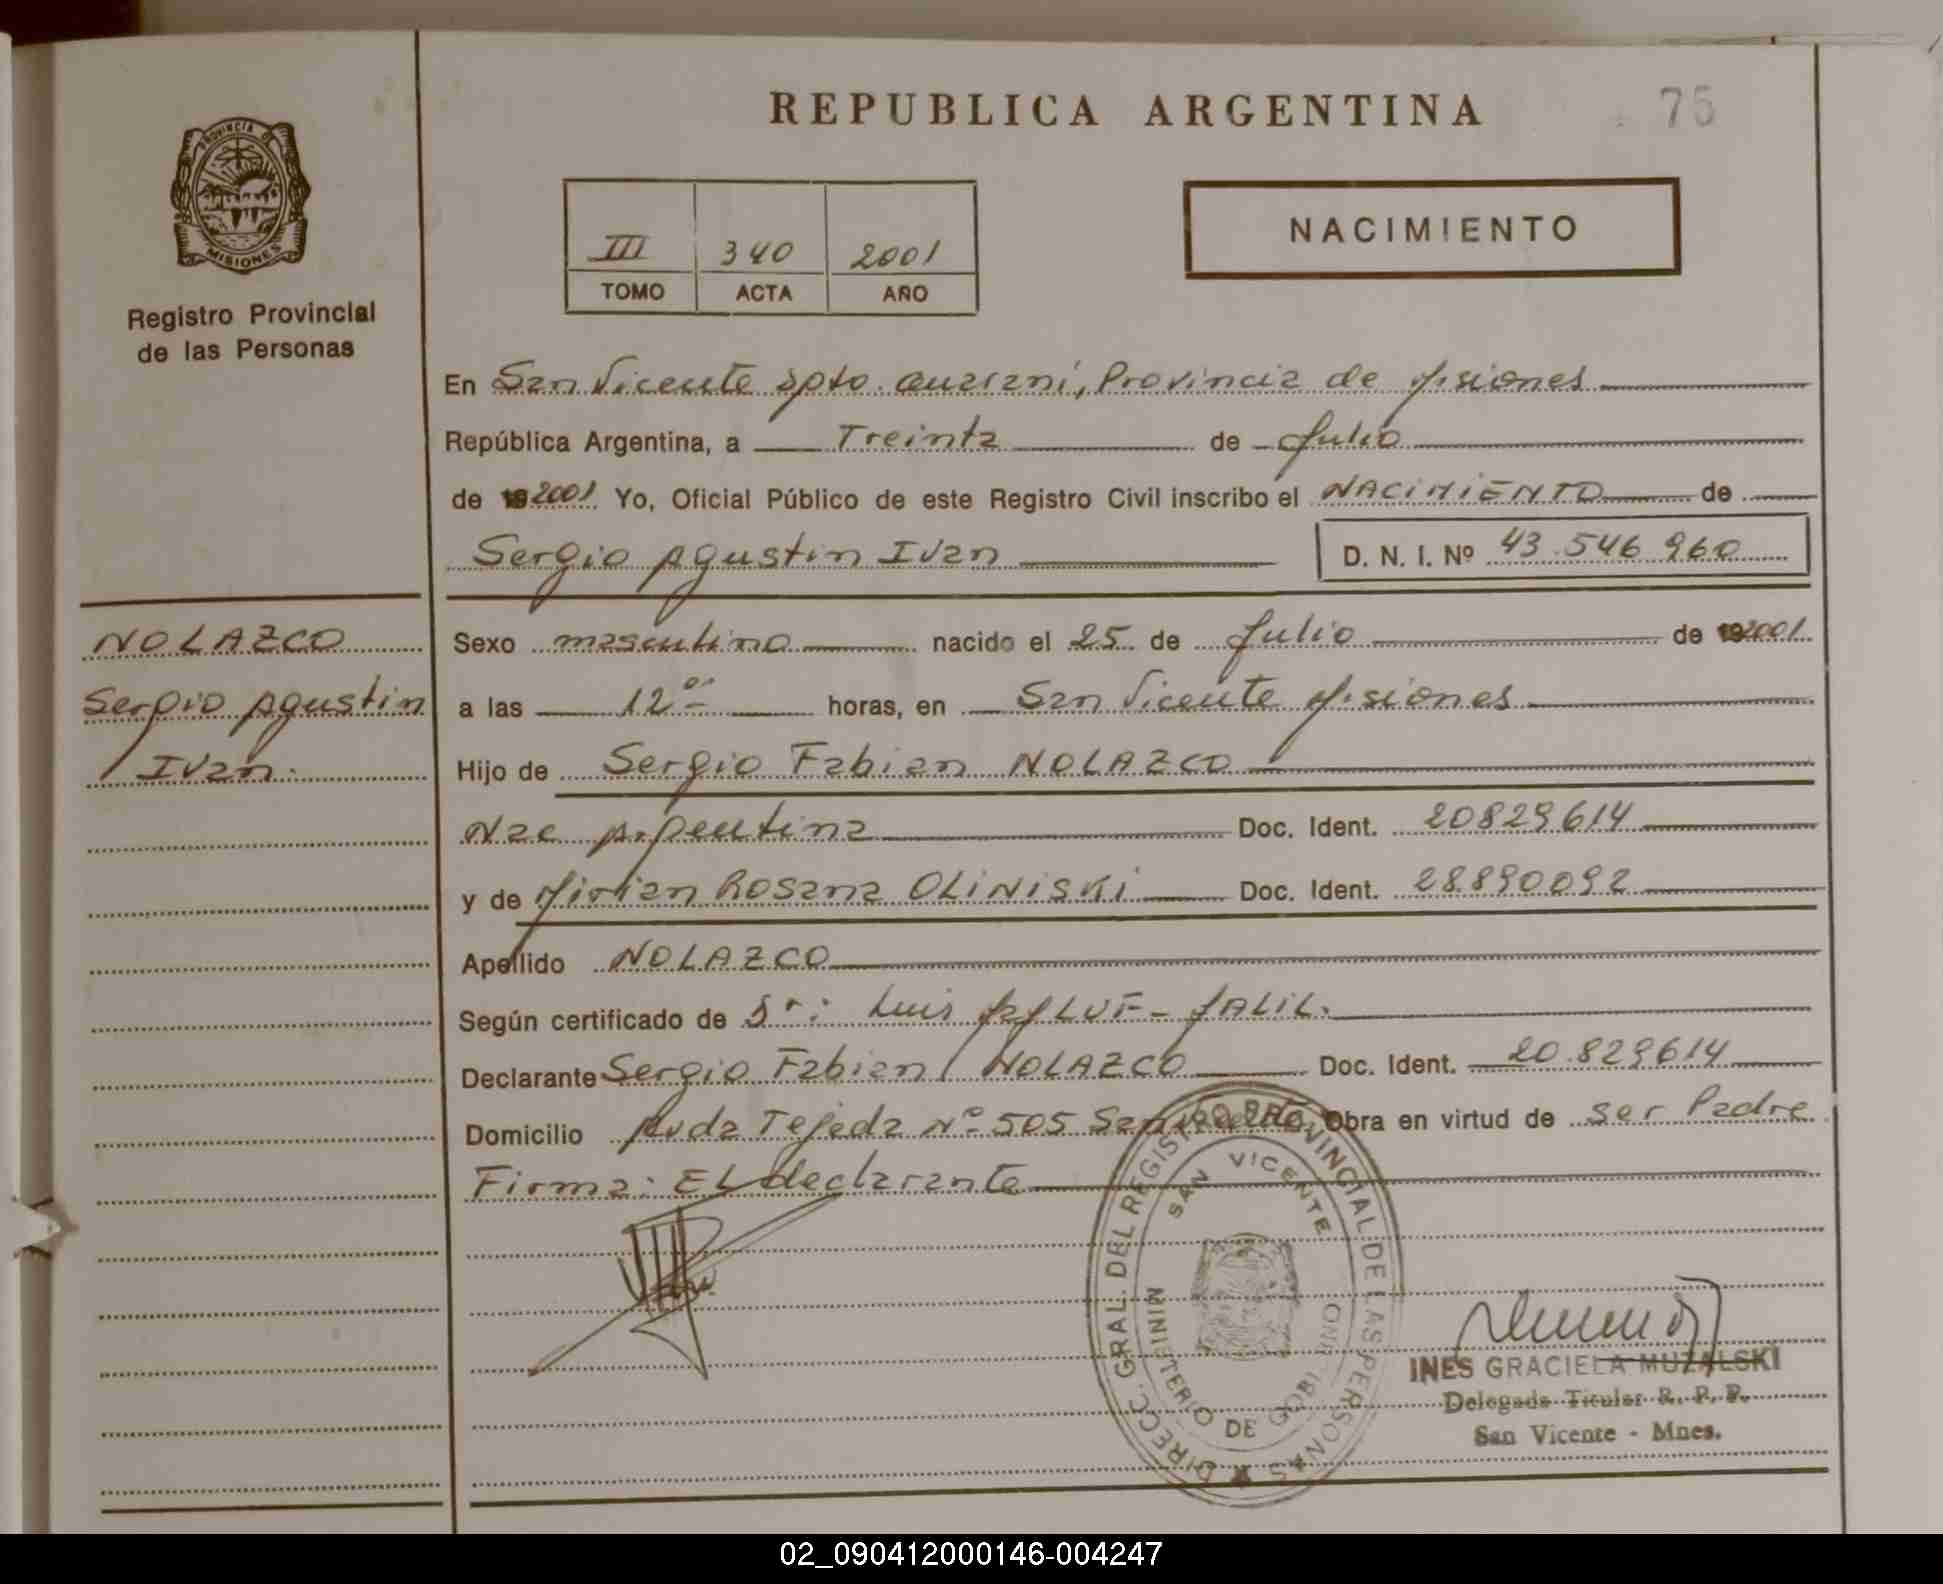 REPUBLICA ARGENTINA
75
PROVINCIA DE
MISIONES
Registro Provincial
de las Personas
III 340 2001
TOMO ACTA AÑO
NACIMIENTO
En San Vicente Dpto. Guaraní, Provincia de Misiones
República Argentina, a Treinta de Julio
de 192001 Yo, Oficial Público de este Registro Civil inscribo el NACIMIENTO de
Sergio Agustin Ivan D. N. I. Nº 43.546.960
NOLAZCO
Sergio Agustin
Ivan.
Sexo masculino nacido el 25 de Julio de 192001
a las 12 horas, en San Vicente Misiones
Hijo de Sergio Fabian NOLAZCO
Nac Argentina Doc. Ident. 20829614
y de Mirian Rosana OLINISKI Doc. Ident. 28.890092
Apellido NOLAZCO
Según certificado de Dr: Luis JALIL.
Declarante Sergio Fabian NOLAZCO Doc. Ident. 20.829614
Domicilio Avda Tejeda Nº 505 San Vicente Obra en virtud de ser Padre
Firma: El declarante
DIRECC. GRAL. DEL REGISTRO PROVINCIAL DE LAS PERSONAS
SAN VICENTE
MINISTERIO DE GOBIERNO
INES GRACIELA MUZALSKI
Delegada Titular R. P. P.
San Vicente - Mnes.
02_090412000146-004247